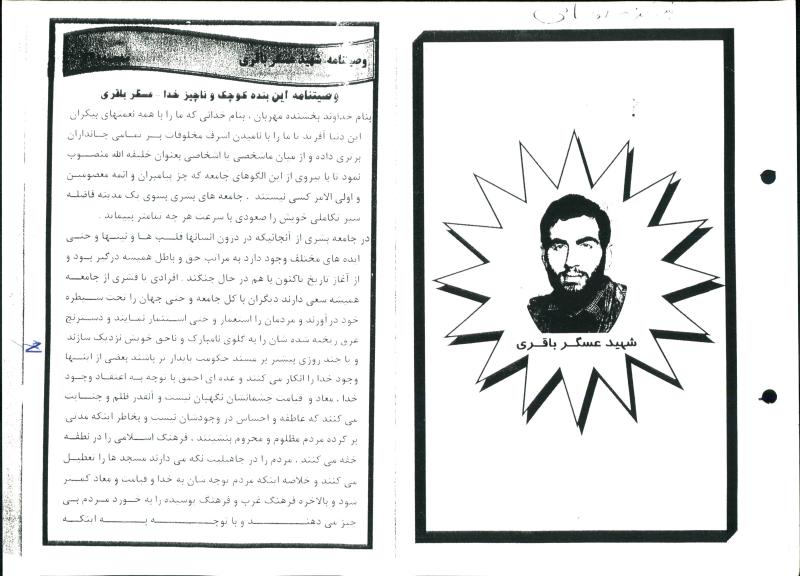 وصیتنامه شهید عسگر باقری
وصیتنامه این بنده کوچک و ناچیز خدا - عسگر باقری
بنام خداوند بخشنده مهربان ، بنام خدائی که ما را با همه نعمتهای بیکران
این دنیا آفرید تا ما را با نامیدن اشرف مخلوقات بر تمامی جانداران
برتری داده و از میان ما شخصی یا اشخاصی بعنوان خلیفه الله منصوب
نمود تا با پیروی از این الگوهای جامعه که جز پیامبران و ائمه معصومین
و اولی الامر کسی نیستند ، جامعه های بشری بسوی یک مدینه فاضله
سیر تکاملی خویش را صعودی با سرعت هر چه تمامتر بپیماید .
در جامعه بشری از آنجائیکه در درون انسانها قلب ها و نیتها و حتی
ایده های مختلف وجود دارد به مراتب حق و باطل همیشه درگیر بود و
از آغاز تاریخ تاکنون با هم در حال جنگند . افرادی یا قشری از جامعه
همیشه سعی دارند دیگران یا کل جامعه و حتی جهان را تحت سیطره
خود درآورند و مردمان را استعمار و حتی استثمار نمایند و دسترنج
عرق ریخته شده شان را به گلوی نامبارک و ناحق خویش نزدیک سازند
و یا چند روزی بیشتر بر مسند حکومت پایدار بر باشند بعضی از اینها
وجود خدا را انکار می کنند و عده ای احمق با توجه به اعتقاد وجود
خدا ، معاد و قیامت چشمانشان نگهبان نیست و آنقدر ظلم و جنایت
می کنند که عاطفه و احساس در وجودشان نیست و بخاطر اینکه مدتی
بر گرده مردم مظلوم و محروم بنشینند ، فرهنگ اسلامی را در نطفه
خفه می کنند ، مردم را در جاهلیت نگه می دارند مسجد ها را تعطیل
می کنند و خلاصه اینکه مردم توجه شان به خدا و قیامت و معاد کمتر
شود و بالاخره فرهنگ غرب و فرهنگ پوسیده را به خورد مردم بی
چیز می دهند و با توجه به اینکه
شهید عسگر باقری